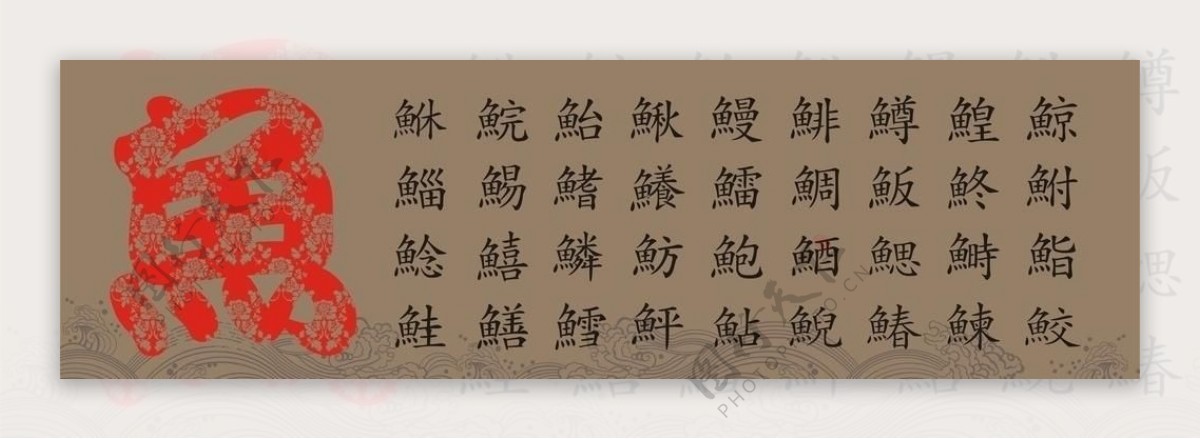 魚
鮴鯇鮐鰍鰻鯡鱒鰉鯨
鯔鯣鰭鱶鱩鯛魬鮗鮒
鯰鱚鱗魴鮑鯂鰓鰣鮨
鮭鱔鱈鮃鮎鯢鰆鰊鮫